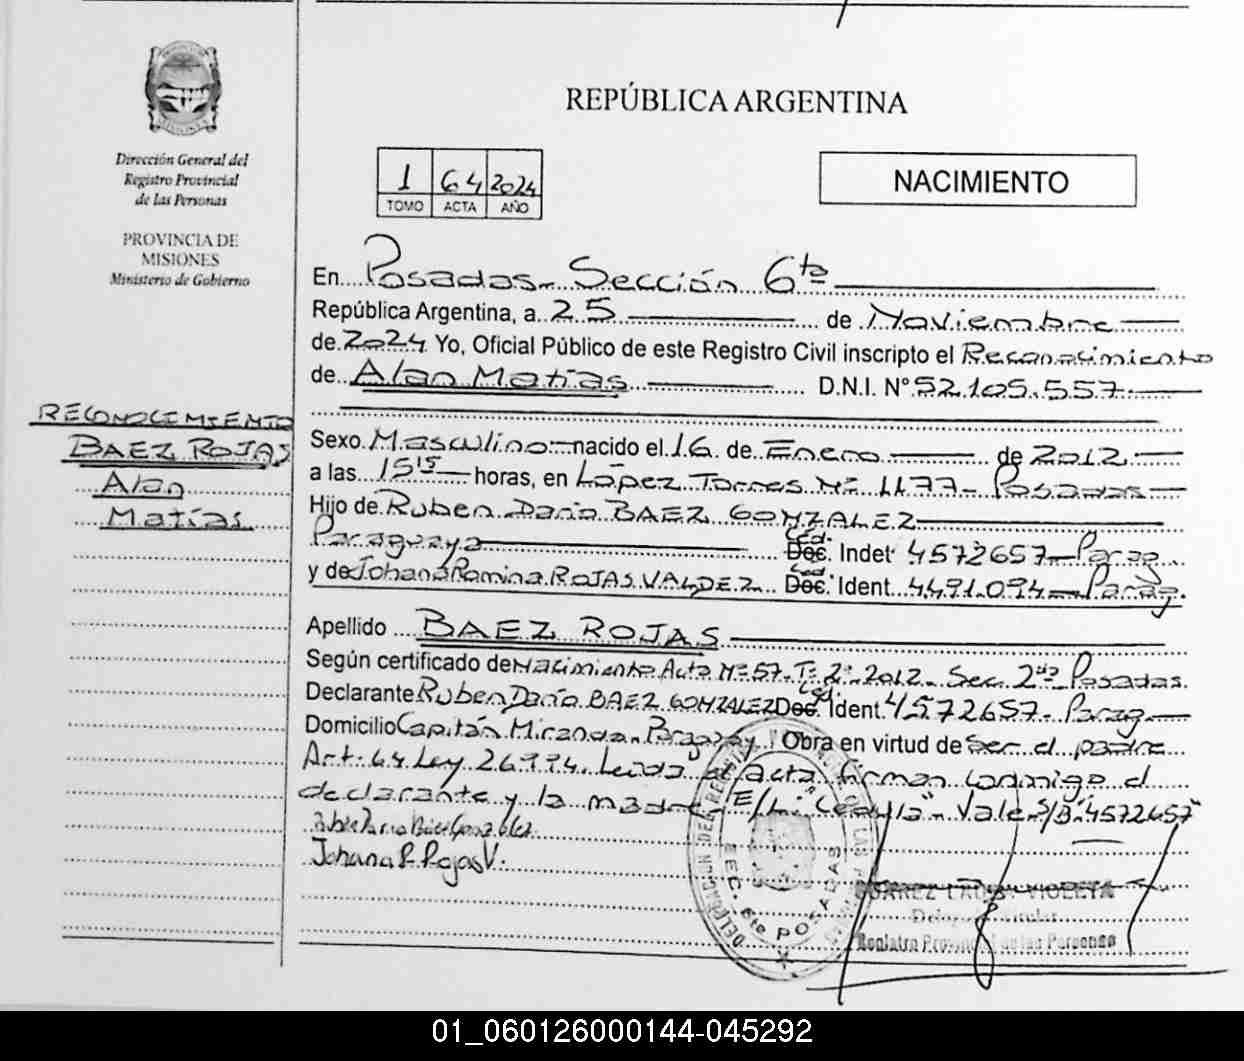 PROVINCIA DE
MISIONES
Dirección General del
Registro Provincial
de las Personas
PROVINCIA DE
MISIONES
Ministerio de Gobierno
REPÚBLICA ARGENTINA
1 64 2024
TOMO ACTA AÑO
NACIMIENTO
En Posadas - Sección 6ta
República Argentina, a 25 de Noviembre
de 2024 Yo, Oficial Público de este Registro Civil inscripto el Reconocimiento
de Alan Matías D.N.I. N° 52.105.557
RECONOCIMIENTO
BAEZ ROJAS
Alan
Matías
Sexo Masculino nacido el 16 de Enero de 2012
a las 15 15 horas, en López Torres Nº 1177 - Posadas
Hijo de Ruben Dario BAEZ GONZALEZ
Paraguaya Ced. Doc. Indet 4572657 - Parag.
y de Johana Romina ROJAS VALDEZ Ced. Doc. Ident. 4491.094 - Parag.
Apellido BAEZ ROJAS
Según certificado de Nacimiento Acta Nº 57. Tº 2º. 2012. Sec. 2da Posadas.
Declarante Ruben Dario BAEZ GONZALEZ Ced. Doc. Ident. 4572657 - Parag.
Domicilio Capitán Miranda. Paraguay. Obra en virtud de Ser el padre
Art. 64 Ley 26994. Leida el Acta firman conmigo el
declarante y la madre. E/Li "Cedula" Vale S/B "4572657"
Johana R. Rojas V.
DELEGACION DEL REGISTRO PROVINCIAL DE LAS PERSONAS
SEC. 6ta POSADAS
SUAREZ LAURA VIOLETA
Delegada Titular
Registro Provincial de las Personas
01_060126000144-045292